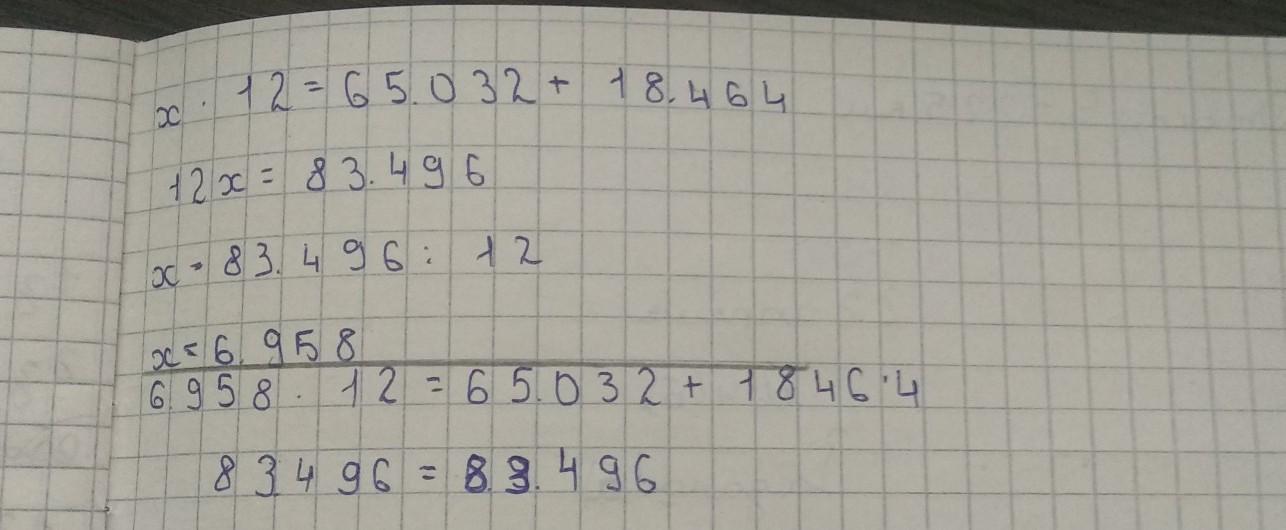 x · 12 = 65.032 + 18.464
12x = 83.496
x = 83.496 : 12
x = 6.958
6.958 · 12 = 65.032 + 1846·4
83496 = 83.496